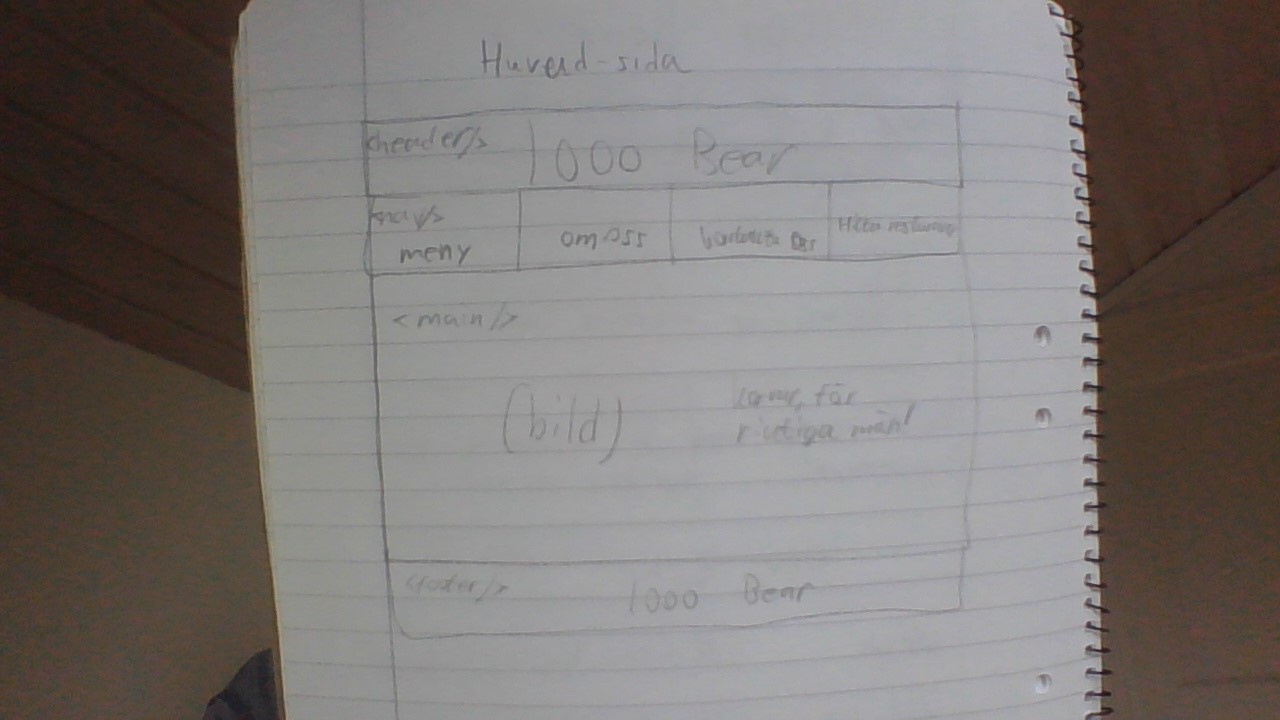 Huvud-sida
<header/>
1000 Bear
<nav/>
meny
om oss
kontakta oss
Hitta restaurang
<main/>
(bild)
för
riktiga män!
<footer/>
1000 Bear